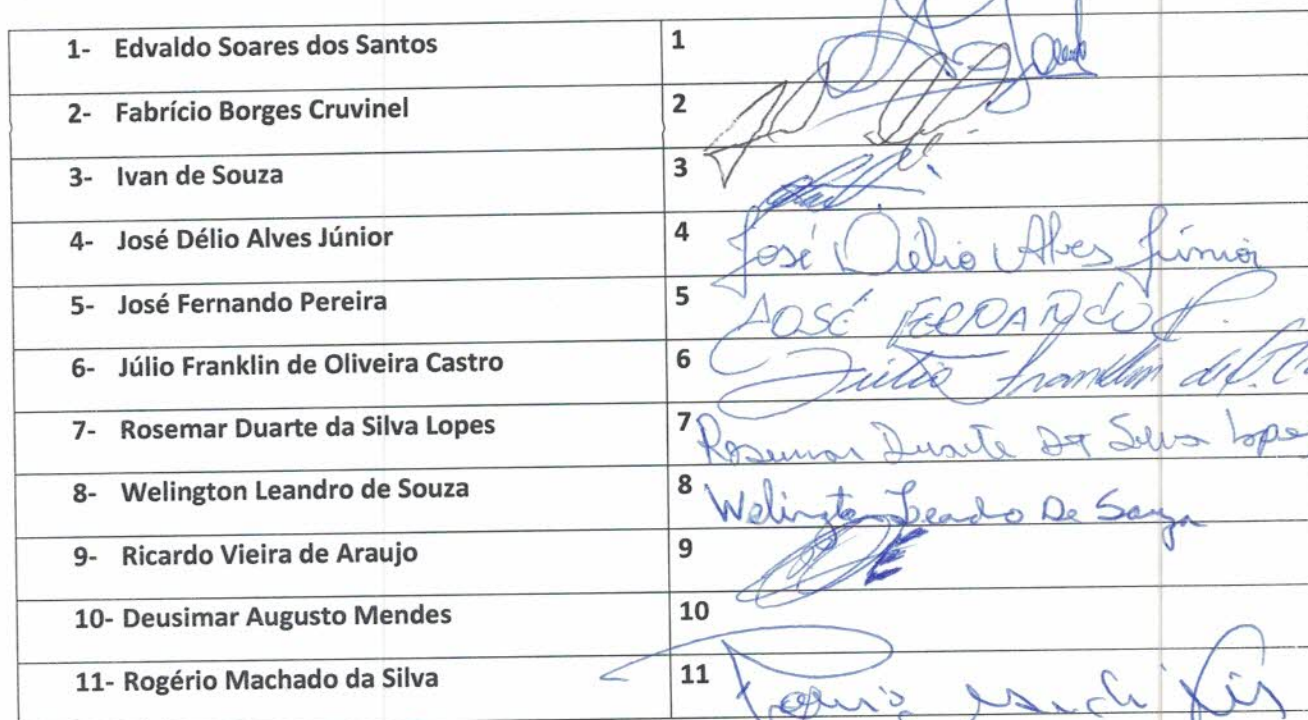 1- Edvaldo Soares dos Santos 1
2- Fabrício Borges Cruvinel 2
3- Ivan de Souza 3
4- José Délio Alves Júnior 4 José Délio Alves Júnior
5- José Fernando Pereira 5 JOSÉ
6- Júlio Franklin de Oliveira Castro 6 Júlio Franklin
7- Rosemar Duarte da Silva Lopes 7 Rosemar Duarte Da Silva Lopes
8- Welington Leandro de Souza 8 Welington De Souza
9- Ricardo Vieira de Araujo 9
10- Deusimar Augusto Mendes 10
11- Rogério Machado da Silva 11